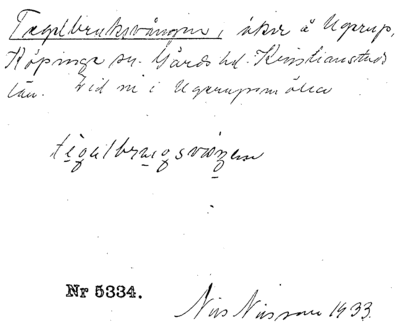 Tegelbruksvången, åker å Ugerup,
Köpinge sn. Gärds hd. Kristianstads
län. Vid nr i Ugerupsmölla
tigalbrugsvåŋen
Nr 5334.
Nils Nilsson 1933.